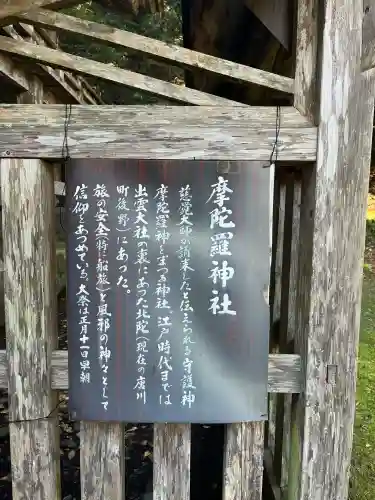 摩陀羅神社
慈覚大師の請来したと伝えられる守護神
摩陀羅神をまつる神社。江戸時代までは
出雲大社の裏にあった北陀(現在の唐川
町後野)にあった。
旅の安全(特に船旅)と風邪の神々として
信仰をあつめている。大祭は正月十一日早朝